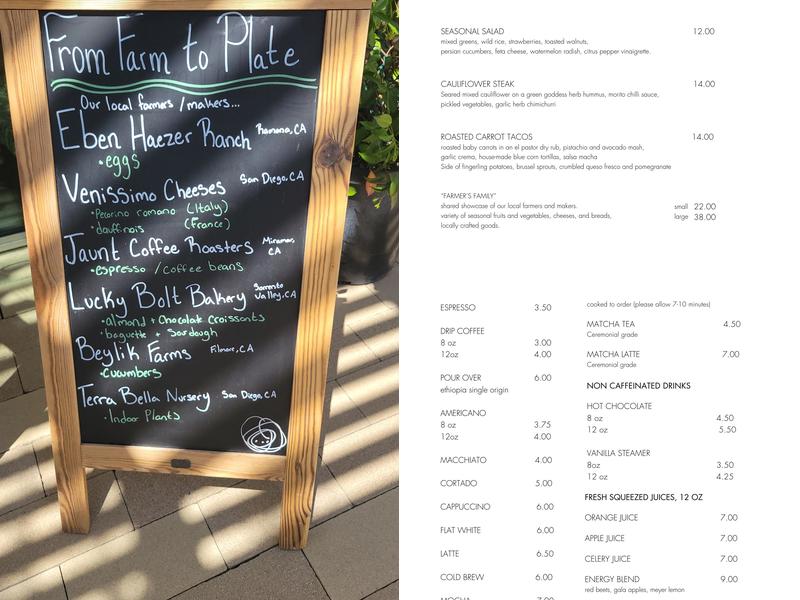 From Farm to Plate
Our local farmers /makers...
Eben Haezer Ranch Ramona, CA
•eggs
Venissimo Cheeses San Diego, CA
•Pecorino romano (Italy)
•dauffinois (France)
Jaunt Coffee Roasters Miramar, CA
•espresso /coffee beans
Lucky Bolt Bakery Sorrento Valley, CA
•almond + Chocolate Croissants
•baguette + Sourdough
Beylik Farms Filmore, CA
•Cucumbers
Terra Bella Nursery San Diego, CA
•Indoor Plants
SEASONAL SALAD 12.00
mixed greens, wild rice, strawberries, toasted walnuts,
persian cucumbers, feta cheese, watermelon radish, citrus pepper vinaigrette.
CAULIFLOWER STEAK 14.00
Seared mixed cauliflower on a green goddess herb hummus, morita chilli sauce,
pickled vegetables, garlic herb chimichurri
ROASTED CARROT TACOS 14.00
roasted baby carrots in an el pastor dry rub, pistachio and avocado mash,
garlic crema, house-made blue corn tortillas, salsa macha
Side of fingerling potatoes, brussel sprouts, crumbled queso fresco and pomegranate
"FARMER'S FAMILY"
shared showcase of our local farmers and makers. small 22.00
variety of seasonal fruits and vegetables, cheeses, and breads, large 38.00
locally crafted goods.
ESPRESSO 3.50
DRIP COFFEE
8 oz 3.00
12oz 4.00
POUR OVER 6.00
ethiopia single origin
AMERICANO
8 oz 3.75
12oz 4.00
MACCHIATO 4.00
CORTADO 5.00
CAPPUCCINO 6.00
FLAT WHITE 6.00
LATTE 6.50
COLD BREW 6.00
MOCHA 7.00
cooked to order (please allow 7-10 minutes)
MATCHA TEA 4.50
Ceremonial grade
MATCHA LATTE 7.00
Ceremonial grade
NON CAFFEINATED DRINKS
HOT CHOCOLATE
8 oz 4.50
12 oz 5.50
VANILLA STEAMER
8oz 3.50
12 oz 4.25
FRESH SQUEEZED JUICES, 12 OZ
ORANGE JUICE 7.00
APPLE JUICE 7.00
CELERY JUICE 7.00
ENERGY BLEND 9.00
red beets, gala apples, meyer lemon